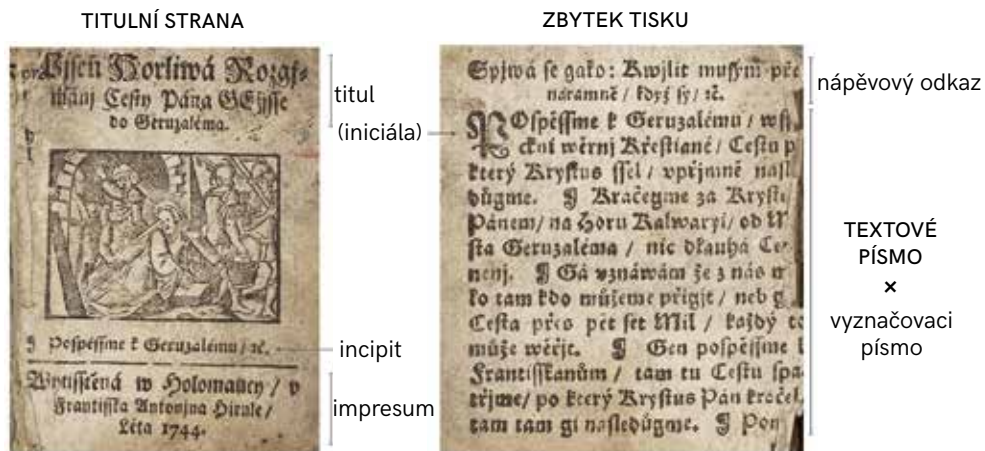 TITULNÍ STRANA
Pjseň Horliwá Rozgj-
mánj Cesty Pána GEžjsse
do Geruzaléma.
¶ Pospěssme k Geruzalému / ꝛc.
Wytisstěná w Holomaucy / v
Frantisska Antonjna Hirnle /
Léta 1744.
titul
(iniciála)
incipit
impresum
ZBYTEK TISKU
Spjwá se gako: Kwjlit musým pře
náramně / když sy / ꝛc.
POspěssme k Geruzalému / wssi
ckni wěrnj Křestiané / Cestu p
který Krystus ssel / vpřjmně nasl
důgme. ¶ Kračegme za Krysti
Pánem / na Horu Kalwaryi / od M
sta Geruzaléma / nic dlauhá Ce
nenj. ¶ Gá vznáwám že z nás n
ko tam kdo můžeme přigjt / neb g
Cesta přes pět set Mil / každý to
může wěřjt. ¶ Gen pospěssme
Frantisskánům / tam tu Cestu spa
třjme / po který Krystus Pán kráčel
tam tam gi následůgme. ¶ Pon
nápěvový odkaz
TEXTOVÉ
PÍSMO
×
vyznačovaci
písmo